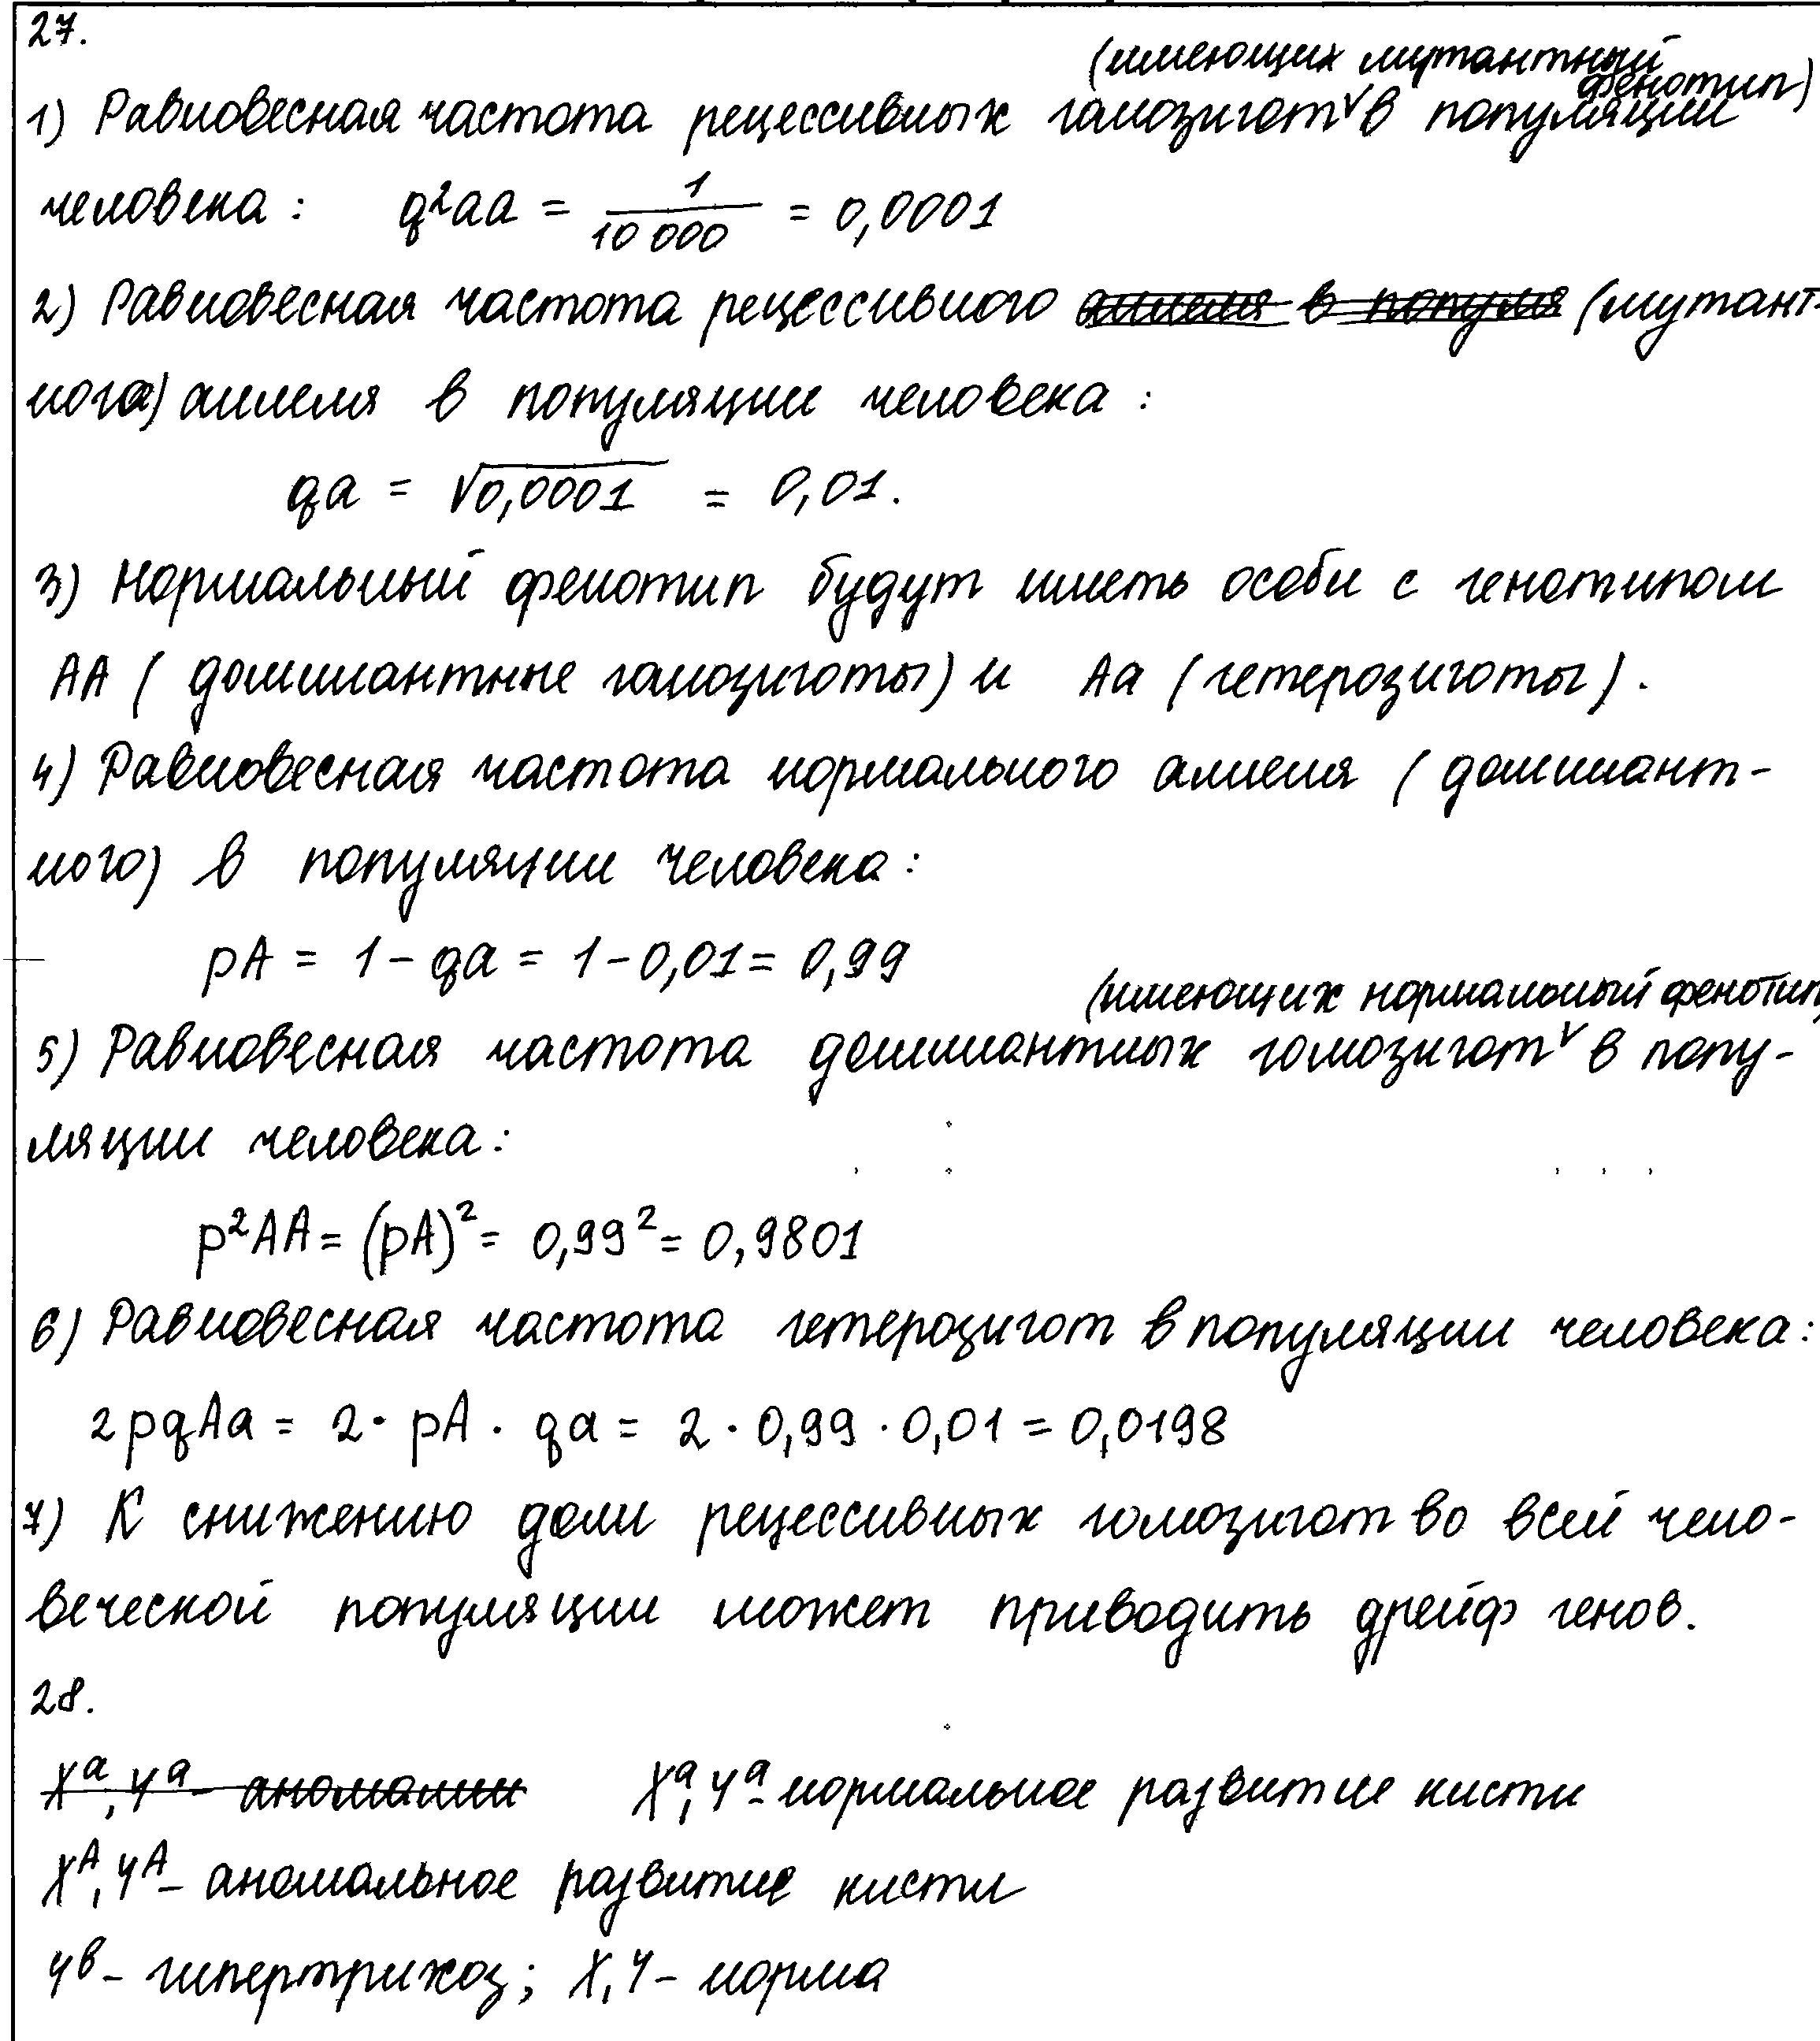 27.
(имеющих мутантный фенотип)
1) Равновесная частота рецессивных гомозигот в популяции
человека: q²aa = 1/10 000 = 0,0001
2) Равновесная частота рецессивного аллеля в популя (мутант-
ного) аллеля в популяции человека:
qa = √0,0001 = 0,01.
3) Нормальный фенотип будут иметь особи с генотипом
АА (доминантные гомозиготы) и Аа (гетерозиготы).
4) Равновесная частота нормального аллеля (доминант-
ного) в популяции человека:
pA = 1 - qa = 1 - 0,01 = 0,99
(имеющих нормальный фенотип)
5) Равновесная частота доминантных гомозигот в попу-
ляции человека:
p²AA = (pA)² = 0,99² = 0,9801
6) Равновесная частота гетерозигот в популяции человека:
2pqAa = 2 · pA · qa = 2 · 0,99 · 0,01 = 0,0198
7) К снижению доли рецессивных гомозигот во всей чело-
веческой популяции может приводить дрейф генов.
28.
Xᵃ, Yᵃ - аномалии Xᵃ, Yᵃ - нормальное развитие кисти
Xᴬ, Yᴬ - аномальное развитие кисти
Yᵇ - гипертрихоз; X, Y - норма